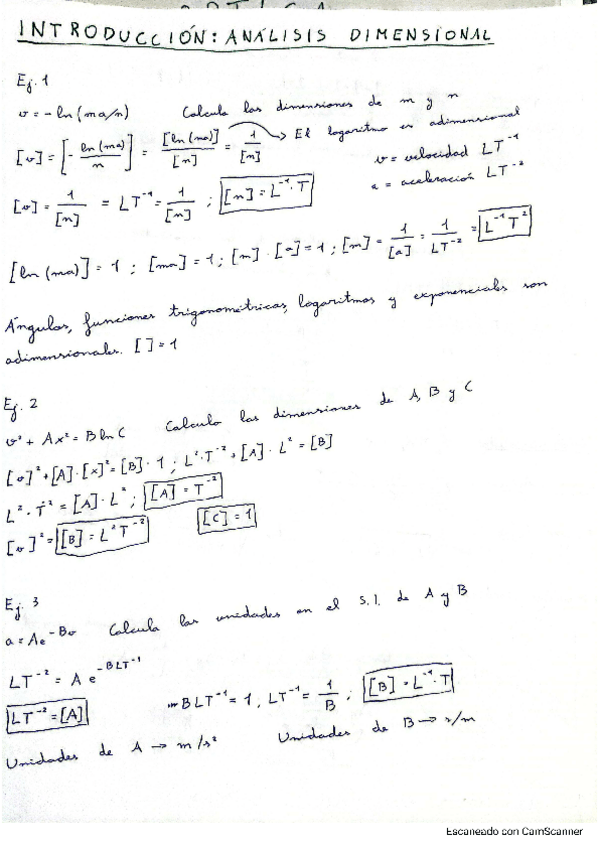 INTRODUCCIÓN: ANÁLISIS DIMENSIONAL
Ej. 1
v = - ln(ma/n) Calcula las dimensiones de m y n
[v] = [- ln(ma)/n] = [ln(ma)]/[n] = 1/[n] → El logaritmo es adimensional
v = velocidad LT⁻¹
a = aceleración LT⁻²
[v] = 1/[n] = LT⁻¹ = 1/[n] ; [n] = L⁻¹·T
[ln(ma)] = 1 ; [ma] = 1 ; [m]·[a] = 1 ; [m] = 1/[a] = 1/LT⁻² = L⁻¹T²
Ángulos, funciones trigonométricas, logaritmos y exponenciales son
adimensionales. [ ] = 1
Ej. 2
v² + Ax² = B ln C Calcula las dimensiones de A, B y C
[v]² + [A]·[x]² = [B]·1 ; L²·T⁻² + [A]·L² = [B]
L²·T⁻² = [A]·L² ; [A] = T⁻²
[v]² = [B] = L²T⁻² [C] = 1
Ej. 3
a = Ae⁻ᴮᵛ Calcula las unidades en el S.I. de A y B
LT⁻² = A e^-BLT⁻¹
LT⁻² = [A] BLT⁻¹ = 1 ; LT⁻¹ = 1/B ; [B] = L⁻¹·T
Unidades de A → m/s² Unidades de B → s/m
Escaneado con CamScanner